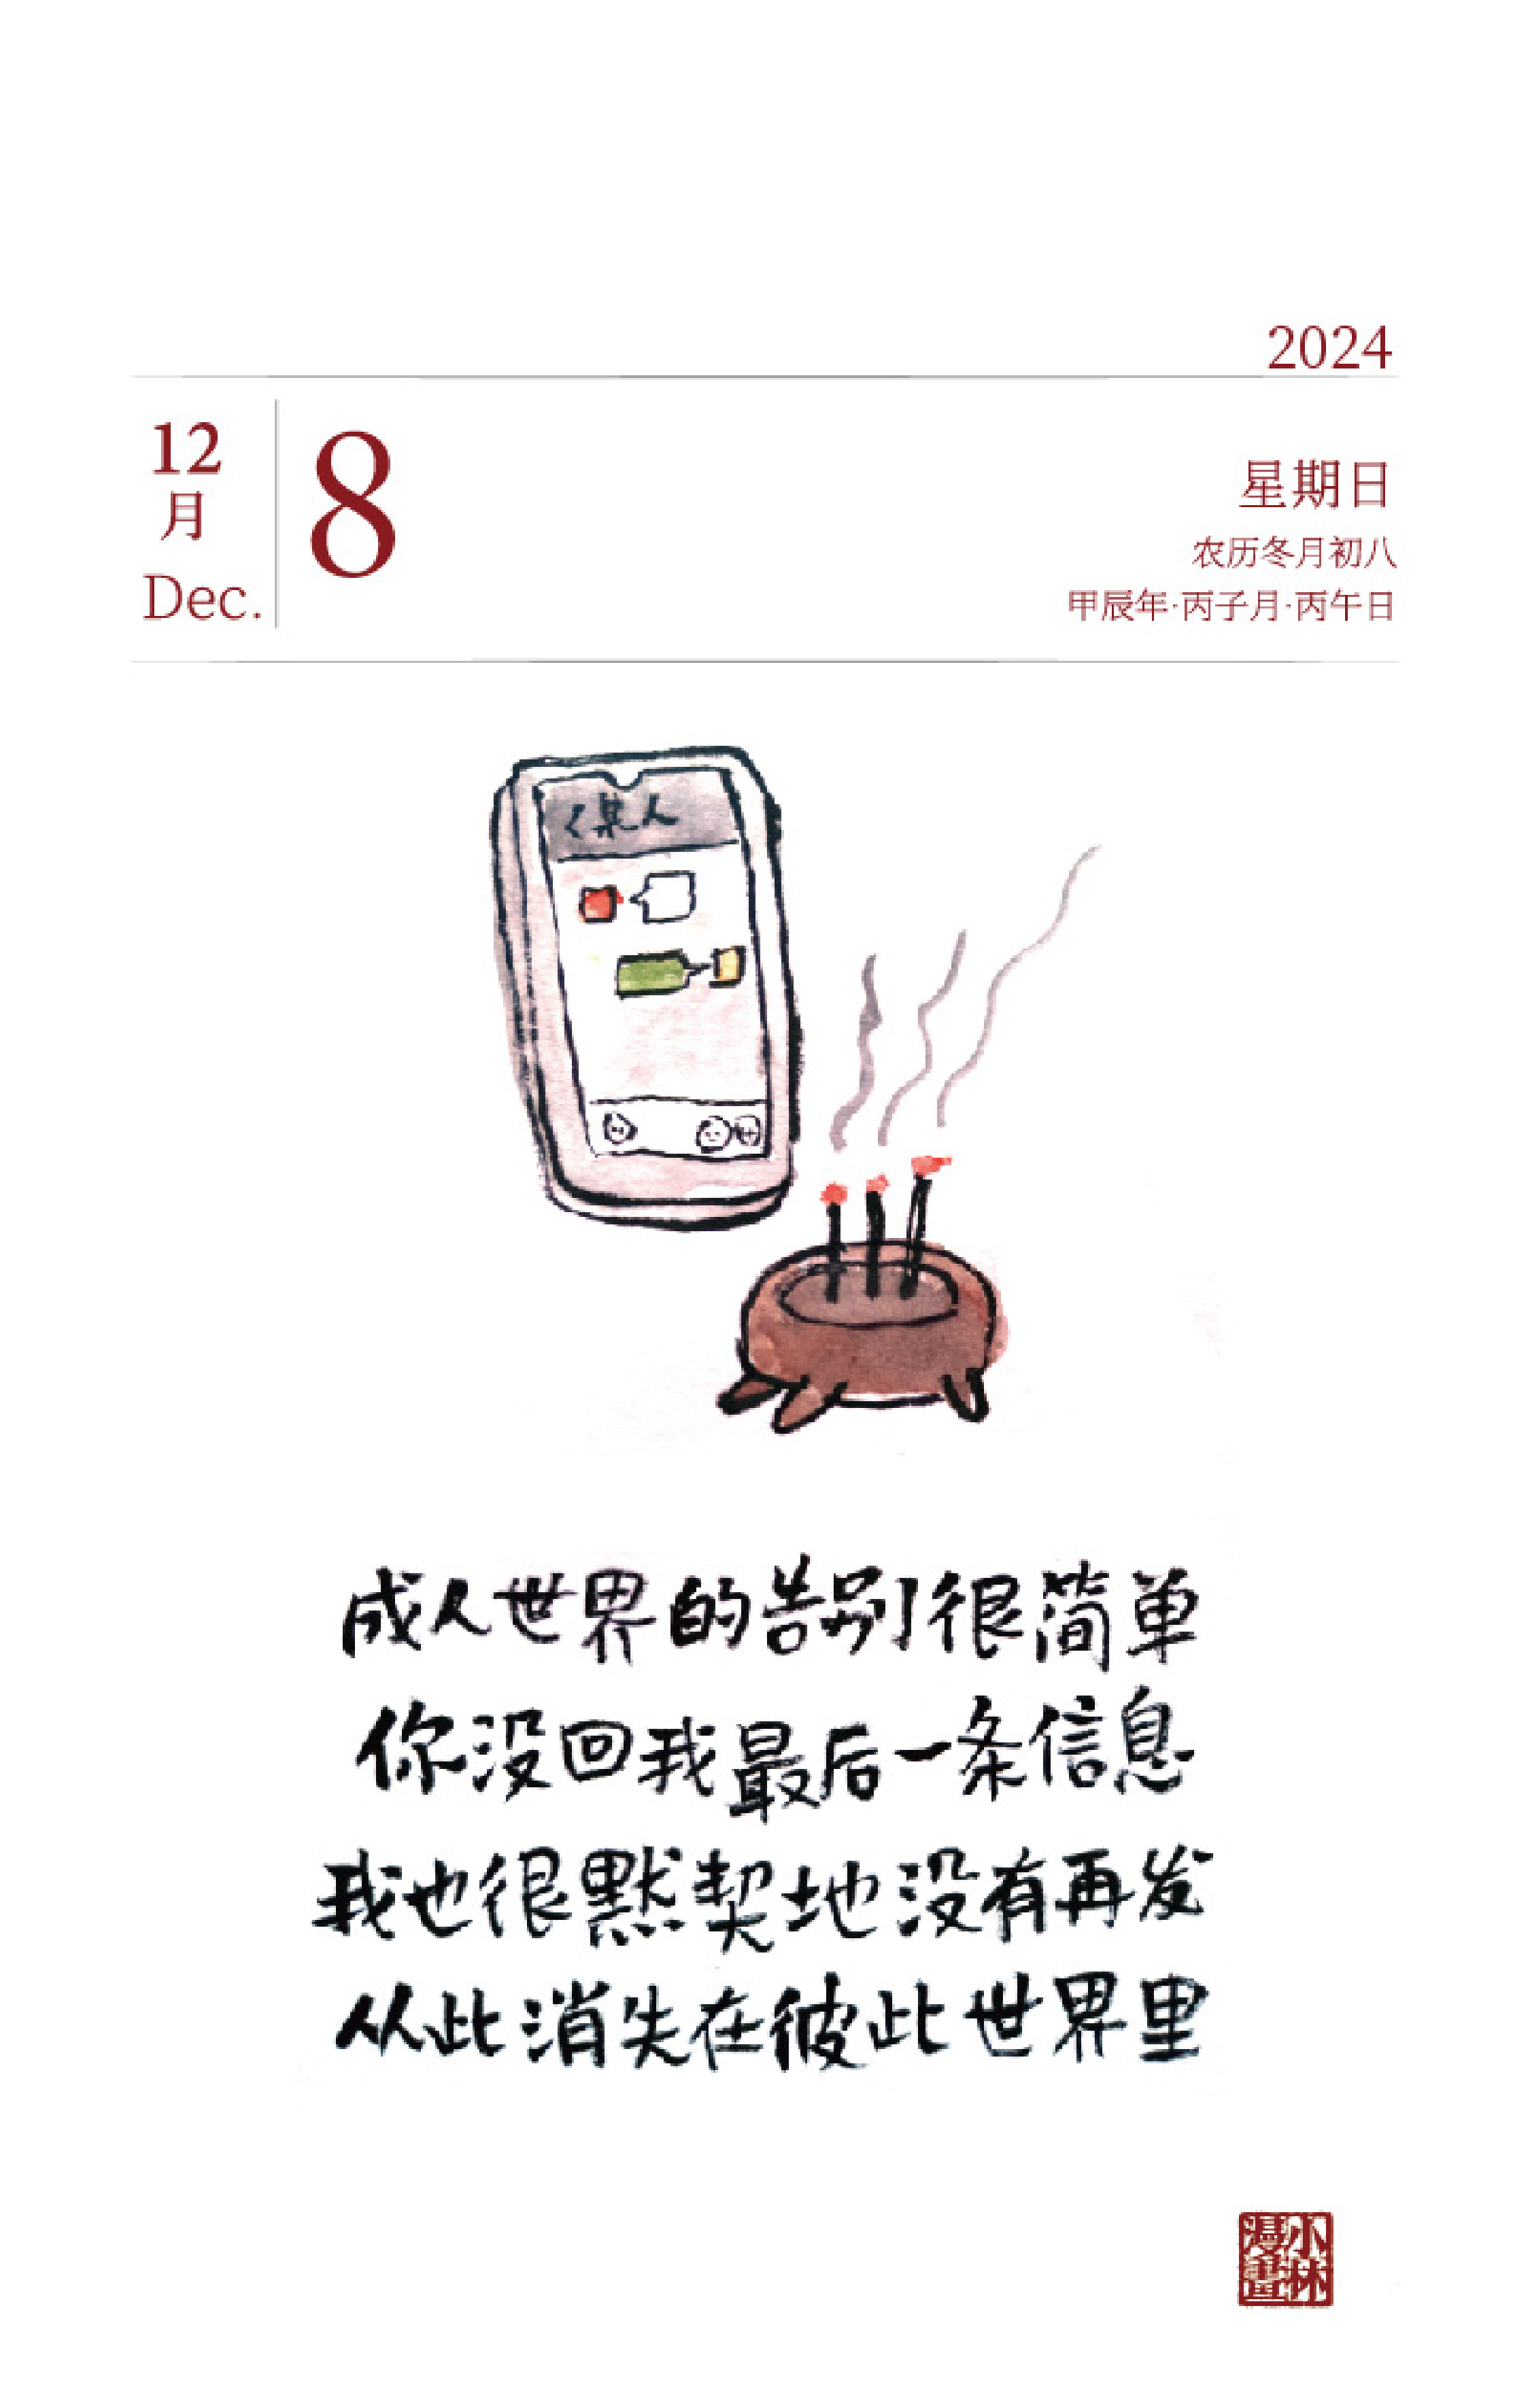 2024
12
月
Dec.
8
星期日
农历冬月初八
甲辰年·丙子月·丙午日
<某人
成人世界的告别很简单
你没回我最后一条信息
我也很默契地没有再发
从此消失在彼此世界里
小林
漫畫